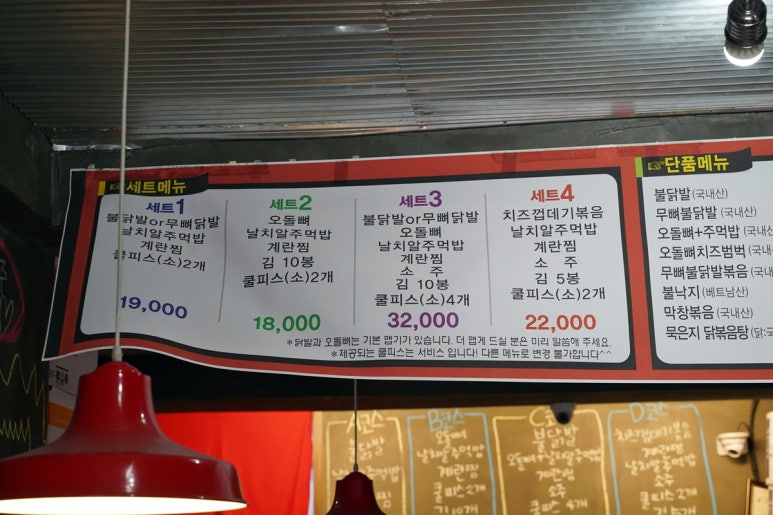 세트메뉴
세트1
불닭발or무뼈닭발
날치알주먹밥
계란찜
쿨피스(소)2개
19,000
세트2
오돌뼈
날치알주먹밥
계란찜
김 10봉
쿨피스(소)2개
18,000
세트3
불닭발or무뼈닭발
오돌뼈
날치알주먹밥
계란찜
소 주
김 10봉
쿨피스(소)4개
32,000
세트4
치즈껍데기볶음
날치알주먹밥
계란찜
소 주
김 5봉
쿨피스(소)2개
22,000
*닭발과 오돌뼈는 기본 맵기가 있습니다. 더 맵게 드실 분은 미리 말씀해 주세요.
*제공되는 쿨피스는 서비스 입니다! 다른 메뉴로 변경 불가합니다^^
단품메뉴
불닭발(국내산)
무뼈불닭발(국내산)
오돌뼈+주먹밥(국내
오돌뼈치즈범벅(국내
무뼈불닭발볶음(국내
불낙지(베트남산)
막창볶음(국내산)
묵은지 닭볶음탕(닭:국
A코스
불닭발
날치알주먹밥
계란찜
B코스
오돌뼈
날치알주먹밥
계란찜
쿨피스 2개
김 10개
C코
불닭발
오돌뼈+날치알주먹밥
계란찜
소주
쿨피스 4개
D코스
치즈껍데기볶음
계란찜
날치알주먹밥
소주
쿨피스 2개
김 5개